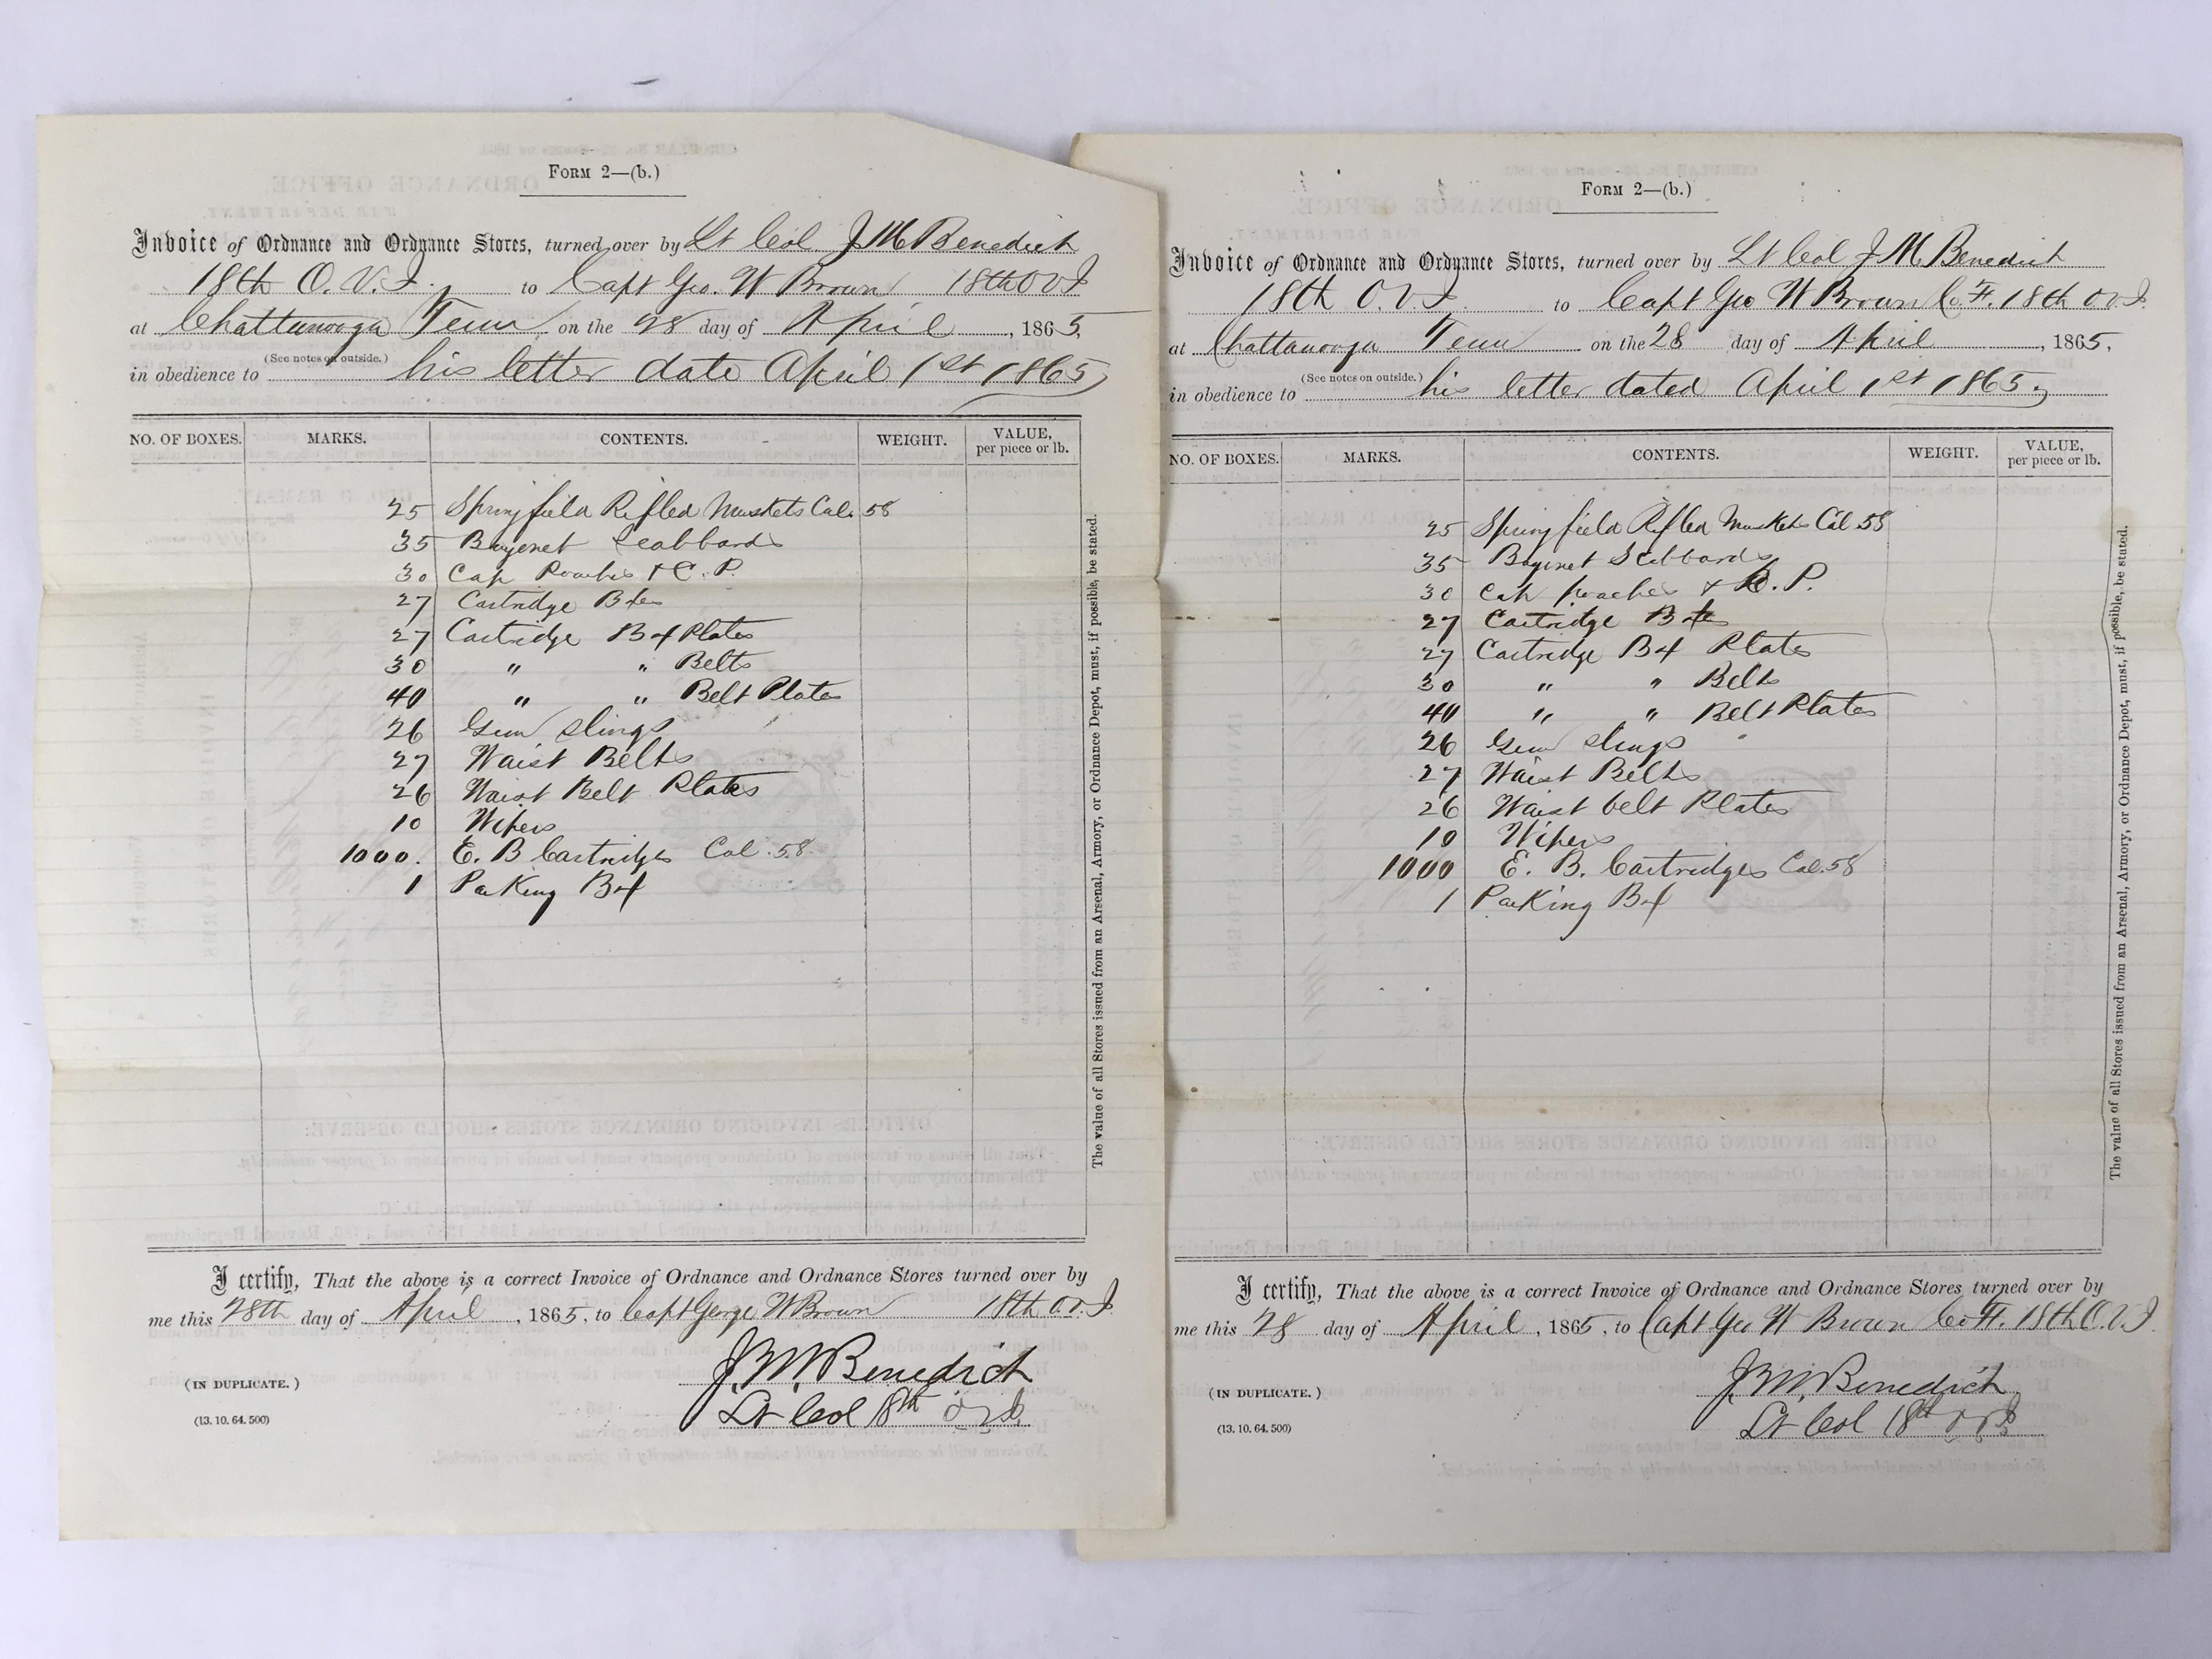 Form 2—(b.)
Invoice of Ordnance and Ordnance Stores, turned over by Lt Col. J. M. Benedict
18th O. V. I. to Capt Geo. W Brown 18th O V I
at Chattanooga Tenn on the 28 day of April, 1865,
in obedience to (See notes on outside.) his letter date April 1st 1865
NO. OF BOXES. MARKS. CONTENTS. WEIGHT. VALUE, per piece or lb.
25 Springfield Rifled Muskets Cal. 58
35 Bayonet Scabbards
30 Cap Pouches & C. P.
27 Cartridge Bxes
27 Cartridge Bx Plates
30 " " Belts
40 " " Belt Plates
26 Gun slings
27 Waist Belts
26 Waist Belt Plates
10 Wipers
1000. E. B Cartridges Cal. 58.
1 Packing Bx
The value of all Stores issued from an Arsenal, Armory, or Ordnance Depot, must, if possible, be stated.
I certify, That the above is a correct Invoice of Ordnance and Ordnance Stores turned over by
me this 28th day of April, 1865, to Capt George W Brown 18th O. V. I
J. M. Benedict
Lt Col 18th O V I
(IN DUPLICATE.)
(13. 10. 64. 500)
Form 2—(b.)
Invoice of Ordnance and Ordnance Stores, turned over by Lt Col J. M. Benedict
18th O. V. I. to Capt Geo W Brown Co. F. 18th O. V. I.
at Chattanooga Tenn on the 28 day of April, 1865,
in obedience to (See notes on outside.) his letter dated April 1st 1865,
NO. OF BOXES. MARKS. CONTENTS. WEIGHT. VALUE, per piece or lb.
25 Springfield Rifled Muskets Cal 58
35 Bayonet Scabbards
30 Cap pouches & C. P.
27 Cartridge Bxes
27 Cartridge Bx Plates
30 " " Belts
40 " " Belt Plates
26 Gun slings
27 Waist Belts
26 Waist belt Plates
10 Wipers
1000 E. B. Cartridges Cal. 58
1 Packing Bx
The value of all Stores issued from an Arsenal, Armory, or Ordnance Depot, must, if possible, be stated.
I certify, That the above is a correct Invoice of Ordnance and Ordnance Stores turned over by
me this 28 day of April, 1865, to Capt Geo W Brown Co F. 18th O. V. I
J. M. Benedict
Lt Col 18th O V I
(IN DUPLICATE.)
(13. 10. 64. 500)